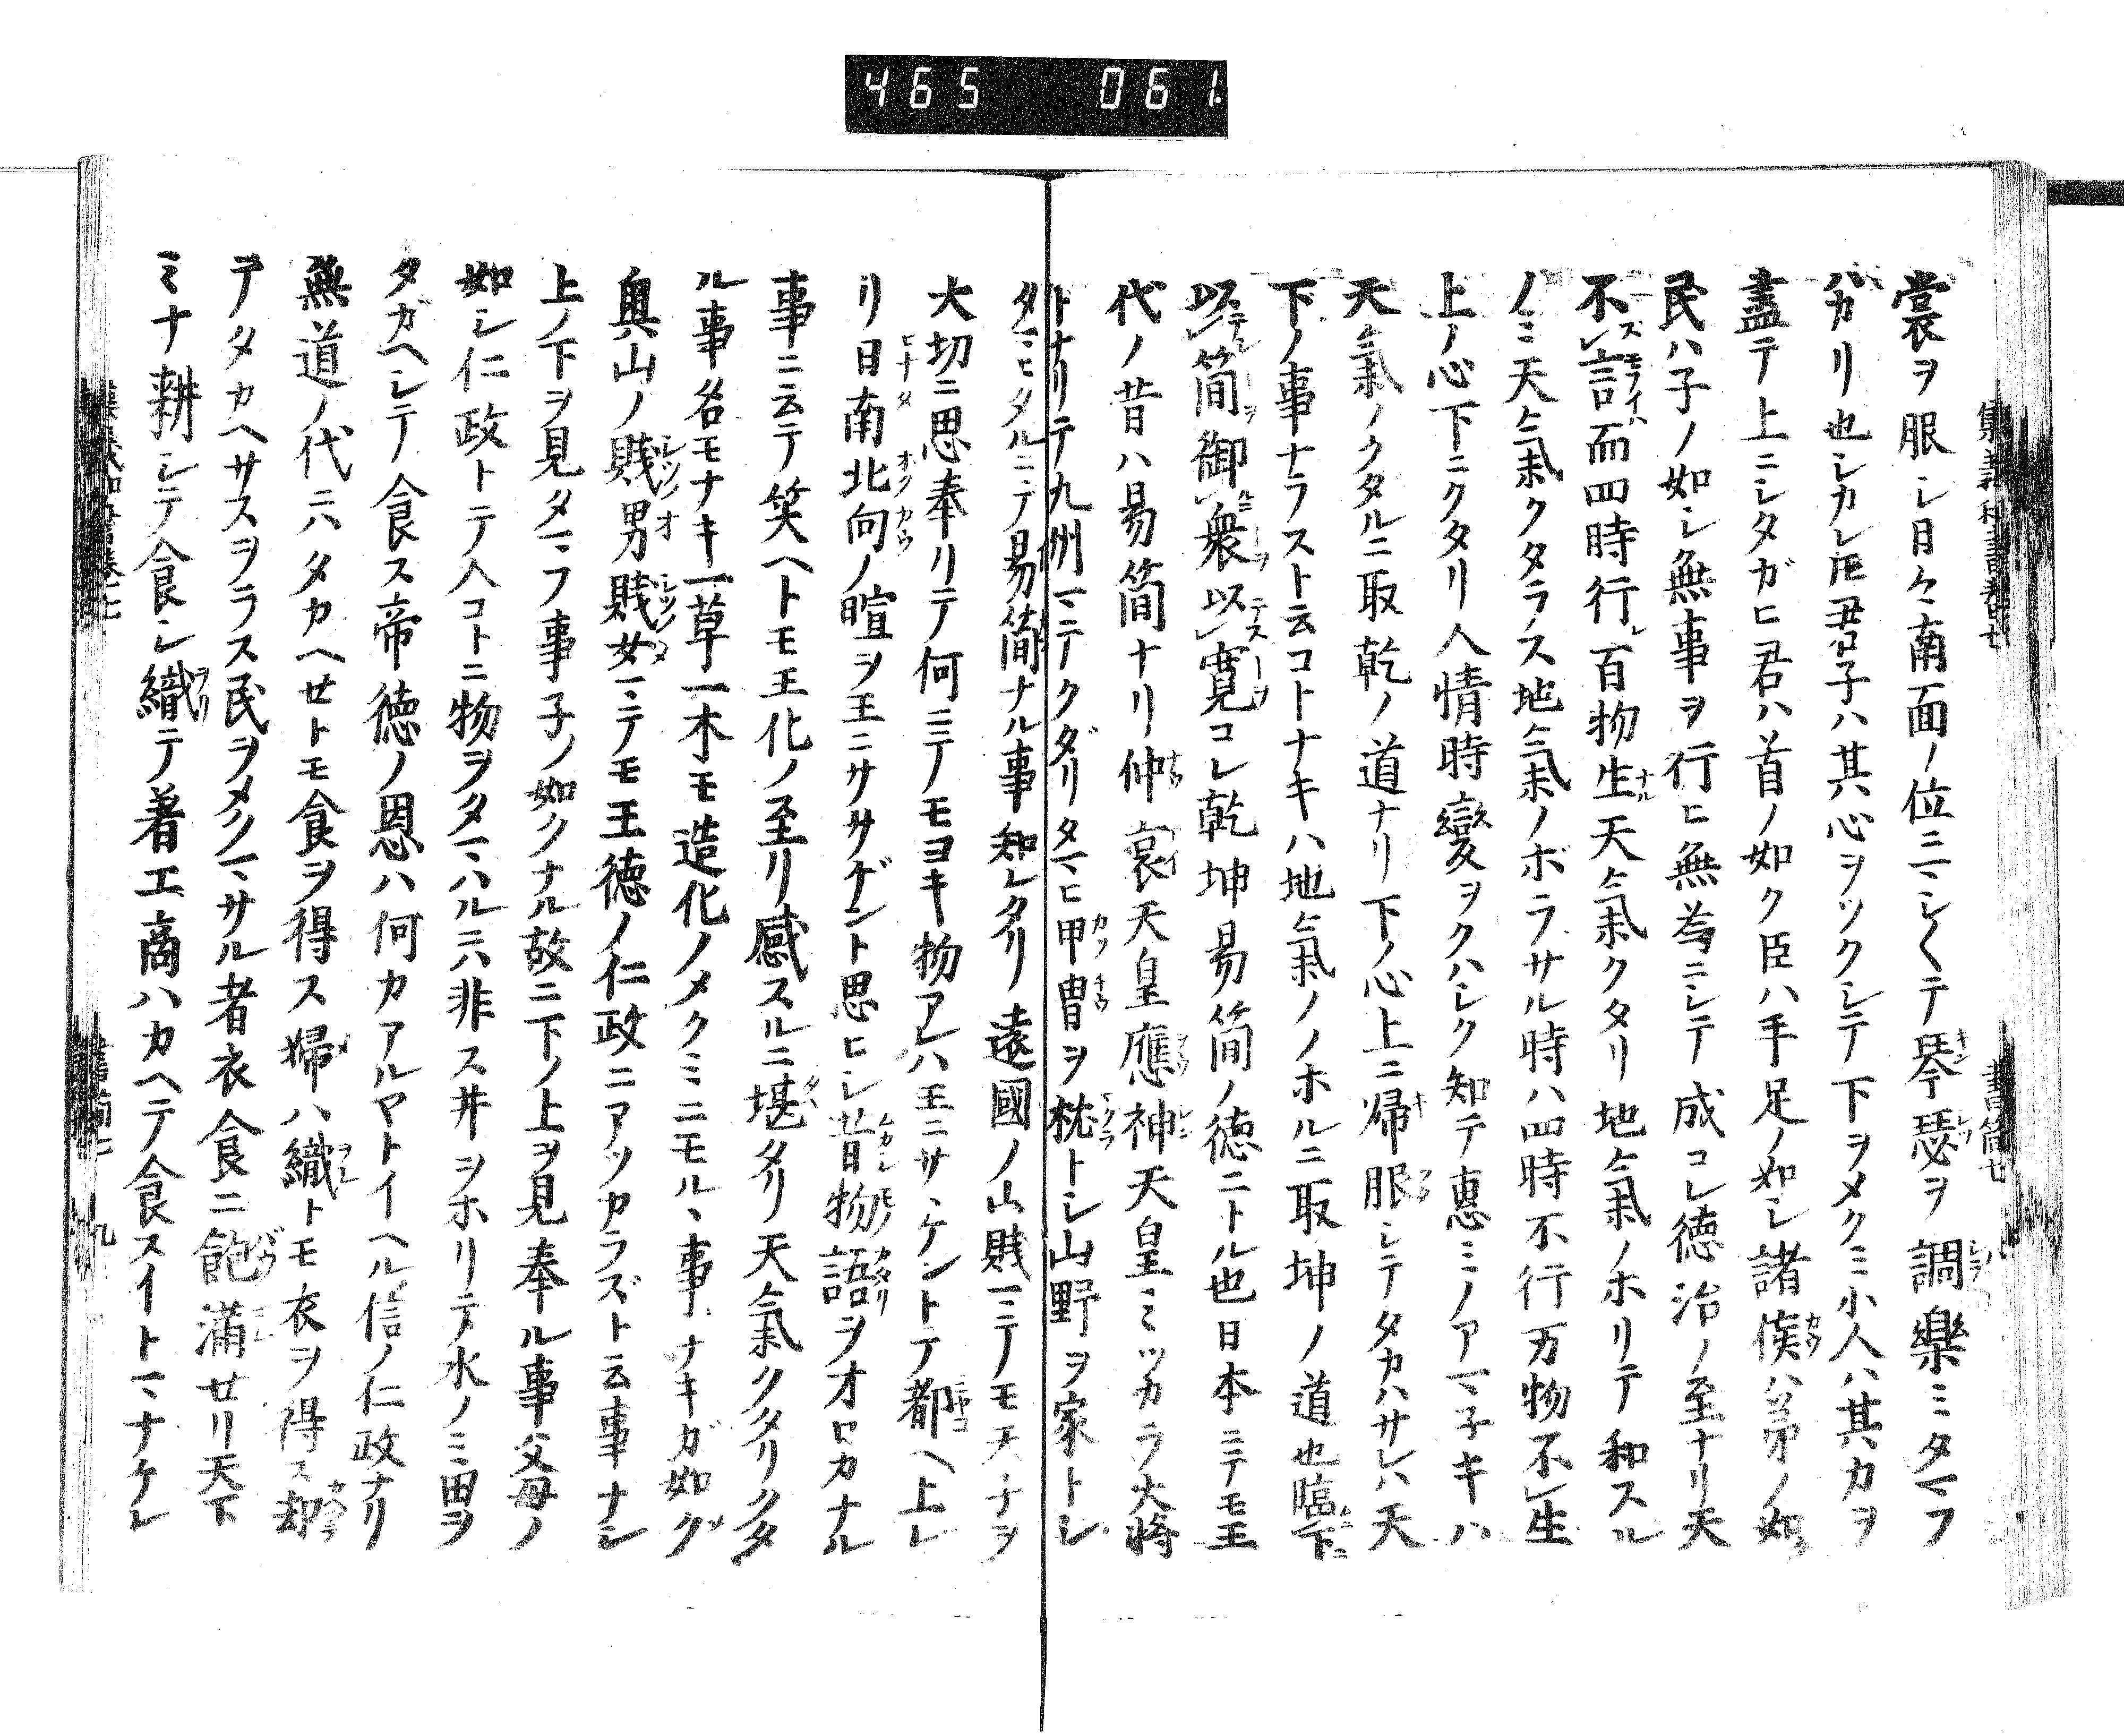 465 061
裳ヲ服シ日々南面ノ位ニマシ〱テ琴瑟ヲ調樂ミタマフ
ハカリ也シカレ𪜈君子ハ其心ヲツクシテ下ヲメクミ小人ハ其力ヲ
盡テ上ニシタガヒ君ハ首ノ如ク臣ハ手足ノ如シ諸侯ハ弟ノ如
民ハ子ノ如シ無事ヲ行ヒ無為ニシテ成コレ徳治ノ至ナリ天
不レ言而四時行レ百物生天氣クタリ地氣ノホリテ和スル
ノミ天氣クタラス地氣ノボラサル時ハ四時不行万物不レ生
上ノ心下ニクタリ人情時變ヲクハシク知テ惠ミノアマ子キハ
天氣ノクタルニ取乾ノ道ナリ下ノ心上ニ帰服シテタカハサレハ天
下ノ事ナラスト云コトナキハ地氣ノノホルニ取坤ノ道也臨下
以レ簡御衆以レ寛コレ乾坤易簡ノ徳ニトル也日本ニテモ王
代ノ昔ハ易簡ナリ仲哀天皇應神天皇ミツカラ大將
トナリテ九州マテクダリタマヒ甲冑ヲ枕トシ山野ヲ家トシ
タマヒタルニテ易簡ナル事知レタリ遠國ノ山賎マテモ天子ヲ
大切ニ思奉リテ何ニテモヨキ物アレハ王ニサヽケントテ都ヘ上レ
リ日南北向ノ暄ヲ王ニササゲント思ヒシ昔物語ヲオロカナル
事ニ云テ笑ヘトモ王化ノ至リ感スルニ堪タリ天氣クタリタ
ル事名モナキ一草一木モ造化ノメクミニモルヽ事ナキガ如ク
奥山ノ賎男賎女マテモ王徳ノ仁政ニアツカラズト云事ナシ
上ノ下ヲ見タマフ事子ノ如クナル故ニ下ノ上ヲ見奉ル事父母ノ
如シ仁政トテ人コトニ物ヲタマハルニハ非ス井ヲホリテ水ノミ田ヲ
タガヘシテ食ス帝徳ノ恩ハ何カアルマトイヘル信ノ仁政ナリ
無道ノ代ニハタカヘせトモ食ヲ得ス婦ハ織トモ衣ヲ得ス却
テタカヘサスヲラス民ヲメクマサル者衣食ニ飽滿せリ天下
ミナ耕シテ食シ織テ著工商ハカヘテ食スイトマナケレ